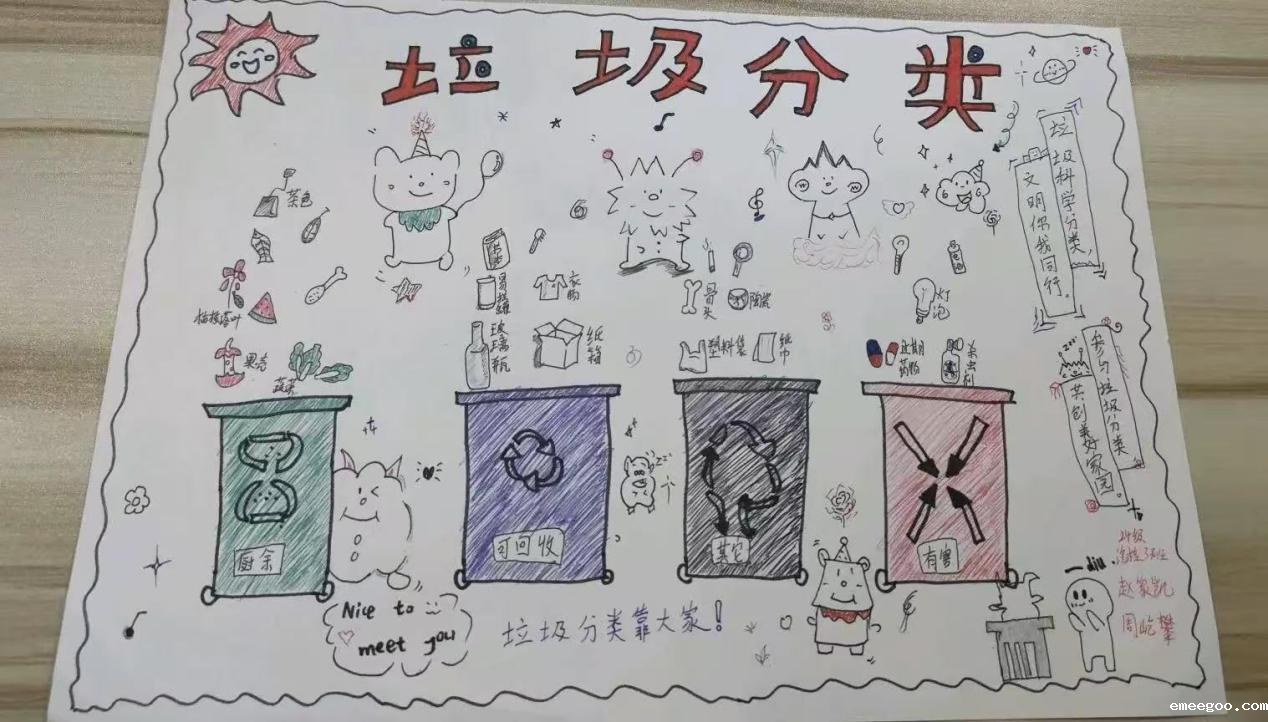 垃圾分类
垃圾科学分类,
文明你我同行。
茶包
衣物
骨头
陶瓷
灯泡
枯枝落叶
果壳
蔬菜
玻璃瓶
纸箱
塑料袋
纸巾
过期药物
杀虫剂
参与垃圾分类
共创美好家园。
厨余
可回收
其它
有害
Nice to
meet you
垃圾分类靠大家!
diu
赵家凯
周屹攀
emeegoo.com